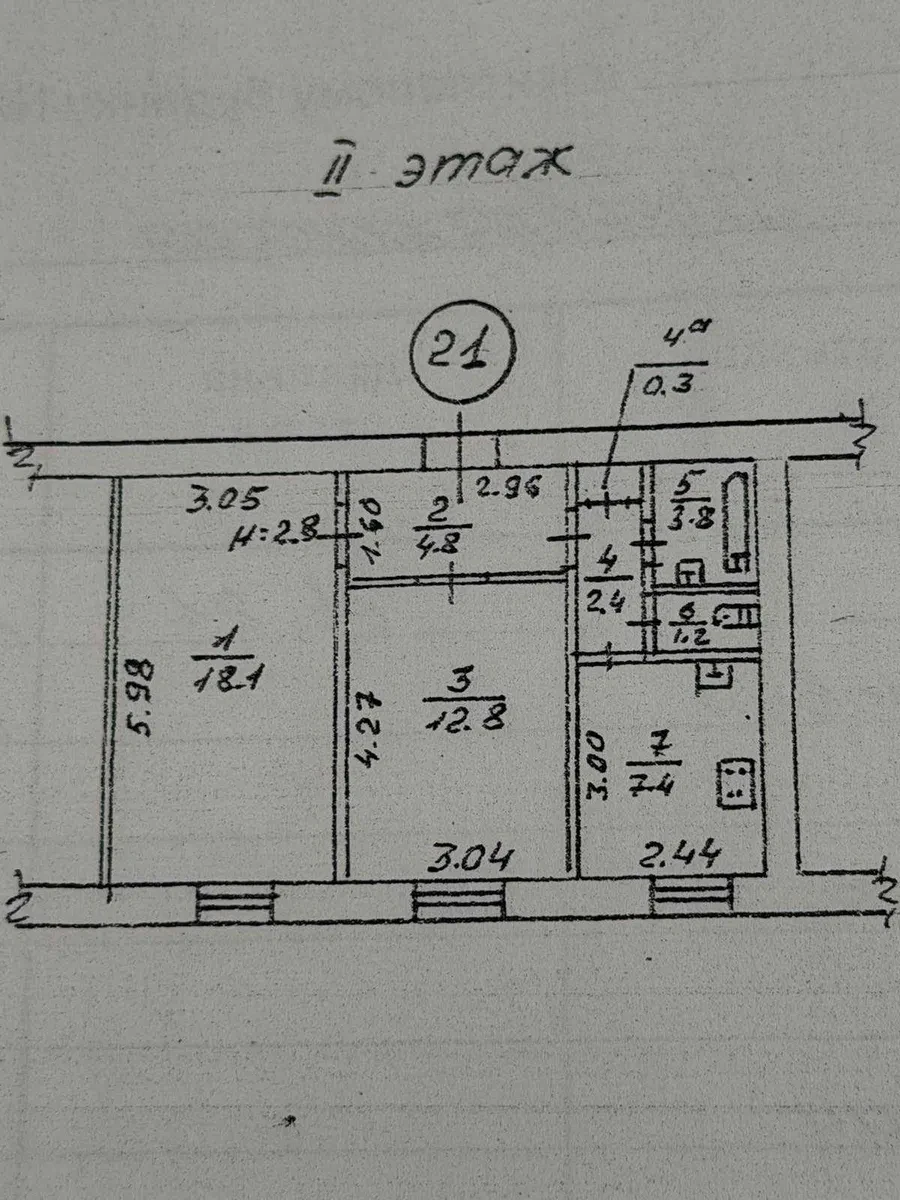 II этаж
21
4а
0.3
3.05
2.96
H=2.8
1.60
2
4.8
5
3.8
4
2.4
6
1.2
1
18.1
5.98
3
12.8
4.27
7
7.4
3.00
3.04
2.44